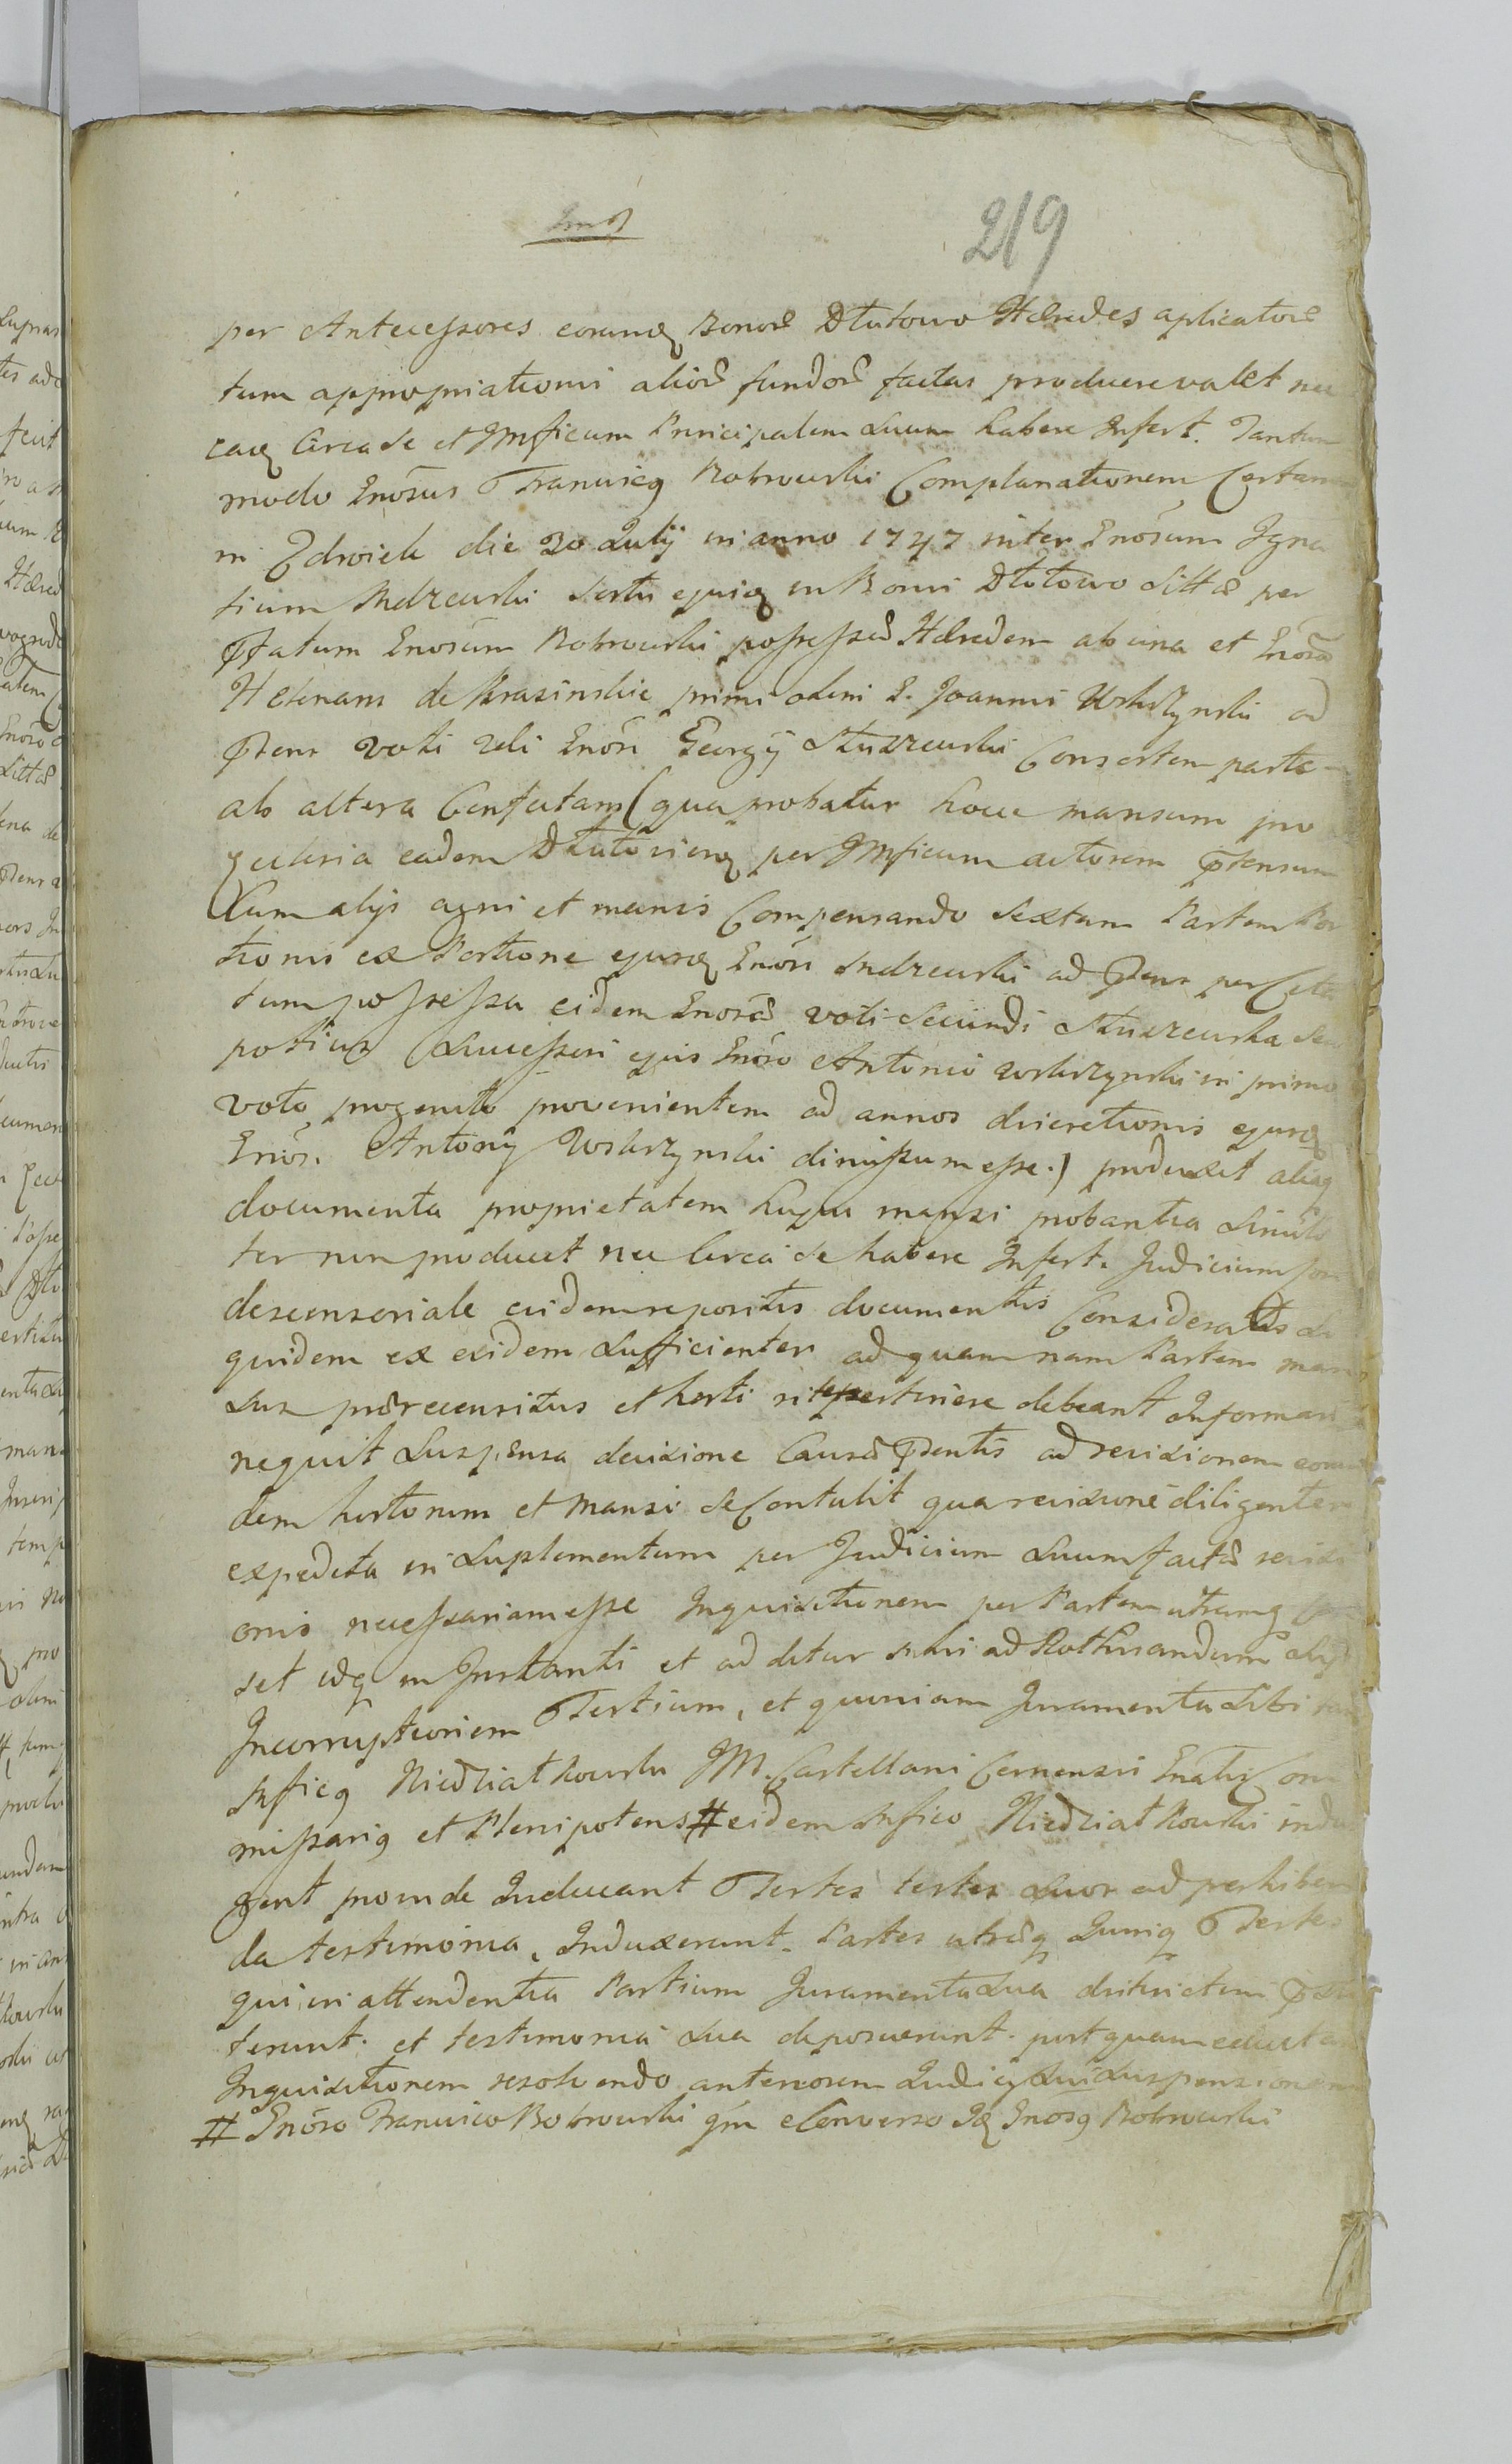 219
per Antecessores eorumq Bonor Dłutowo Hæredes aplicator
tum appropriationi alior fundor factas producere valet nec
easq Circa se et Imficum Principalem Suum habere Infert. Tantum
modo Gnosus Francisq Bobrowski Complanationem Certam
in Zdroiek die 20 Julij in anno 1747 inter Gnosum Igna
tium Mdzewski Sortis ejusq in Bonis Dłutowo Sittæ per
Ptatum Gnosum Bobrowski possessæ Hæredem ab una et Gnosam
Helenam de Krasinskie primi olim G. Joannis Wskrzynski ad
Pens voti 2di Gnosi Georgij Stuzewski Consortem parte
ab altera Confectam (qua probatur hocce mansum pro
Ecclesia eadem Dłutoviens per Imficum actorem Ptensum
Cum alijs agris et mansis Compensando Sextam Partem Por
tionis ex Portione ejusdq Gnosi Mdzewski ad Pens per Cita
tum possessa eidem Gnosæ voti Secundi Stuzewska Seu
potius Successori ejus Gnoso Antonio Wskrzynski in primo
voto progenito provenientem ad annos discretionis ejusdq
Gnosi Antonij Wskrzynski dimissum esse.) produxit aliaq
documenta proprietatem hujus mansi probantia Simili
ter non producit nec Circa se habere Infert. Judicium
descensoriale eisdem repositis documentis Consideratis Si
quidem ex eisdem Sufficienter ad quam nam Partem man
sus prærecensitus et horti rite pertinere debeant Informari
nequit Suspensa decisione Causæ Pentis ad revisionem eorun
dem hortorum et mansi se Contulit qua revisione diligenter
expedita in Suplementum per Judicium Suum factæ revisi
onis necessariam esse Inquisitionem per Partem utramq
set idq in Instanti et ad ditur Mri ad Rothisandum
Incorruptionem Testium, et quoniam Juramenta Sibi
Mficq Niedziałkowski JM. Castellani Cernensis Gnatis Com
missariq et Plenipotens # eidem Mfico Niedziałkowski indul
gent proinde Inducant Testes testes Suos ad perhiben
da testimonia, Induxerunt. Partes utræq Suniq Testes
qui in attendentia Partium Juramenta Sua districtim Pæsti
terunt. et testimonia Sua deposuerunt. post quam
Inquisitionem resolvendo anteriorem Judicij Sui Suspensionem
# Gnoso Francisco Bobrowski qm e Converso Idq Gnosq Bobrowski